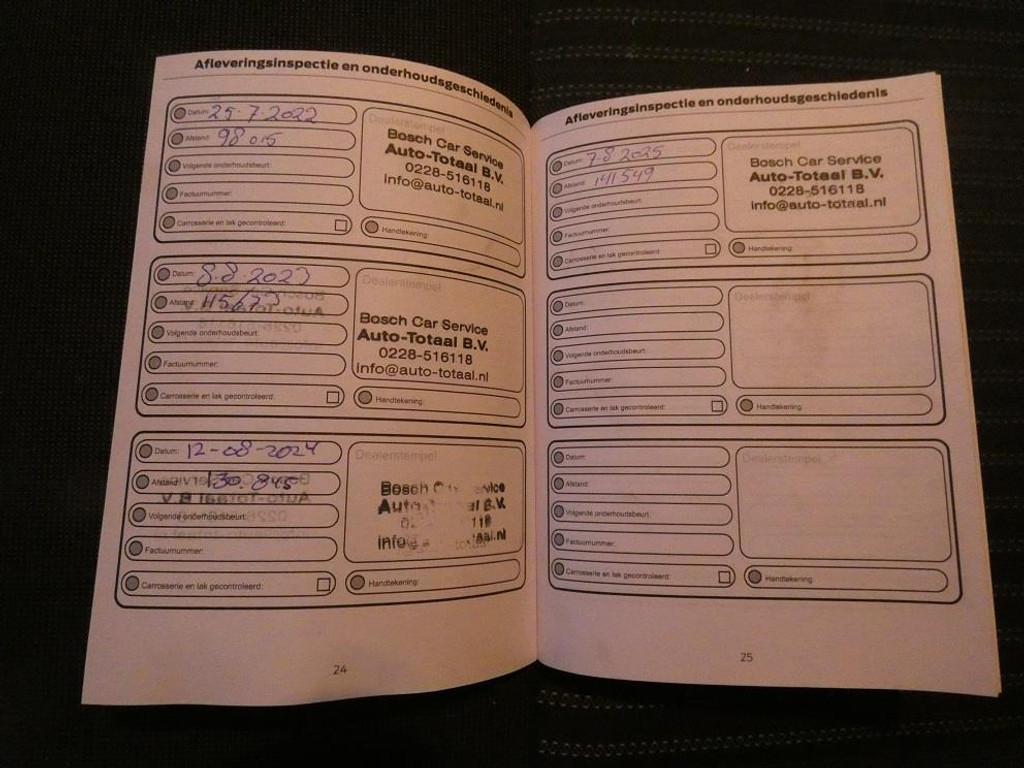 Afleveringsinspectie en onderhoudsgeschiedenis
Datum: 25-7-2022
Afstand: 98015
Volgende onderhoudsbeurt:
Factuurnummer:
Carrosserie en lak gecontroleerd:
Dealerstempel
Bosch Car Service
Auto-Totaal B.V.
0228-516118
info@auto-totaal.nl
Handtekening:
Datum: 8-8-2023
Afstand:
Volgende onderhoudsbeurt:
Factuurnummer:
Carrosserie en lak gecontroleerd:
Dealerstempel
Bosch Car Service
Auto-Totaal B.V.
0228-516118
info@auto-totaal.nl
Handtekening:
Datum: 12-08-2024
Afstand: 130.845
Volgende onderhoudsbeurt:
Factuurnummer:
Carrosserie en lak gecontroleerd:
Dealerstempel
Bosch
B.V.
Handtekening:
24
Afleveringsinspectie en onderhoudsgeschiedenis
Datum: 7-8-2025
Afstand: 141549
Volgende onderhoudsbeurt:
Factuurnummer:
Carrosserie en lak gecontroleerd:
Dealerstempel
Bosch Car Service
Auto-Totaal B.V.
0228-516118
info@auto-totaal.nl
Handtekening:
Datum:
Afstand:
Volgende onderhoudsbeurt:
Factuurnummer:
Carrosserie en lak gecontroleerd:
Dealerstempel
Handtekening:
Datum:
Afstand:
Volgende onderhoudsbeurt:
Factuurnummer:
Carrosserie en lak gecontroleerd:
Dealerstempel
Handtekening:
25